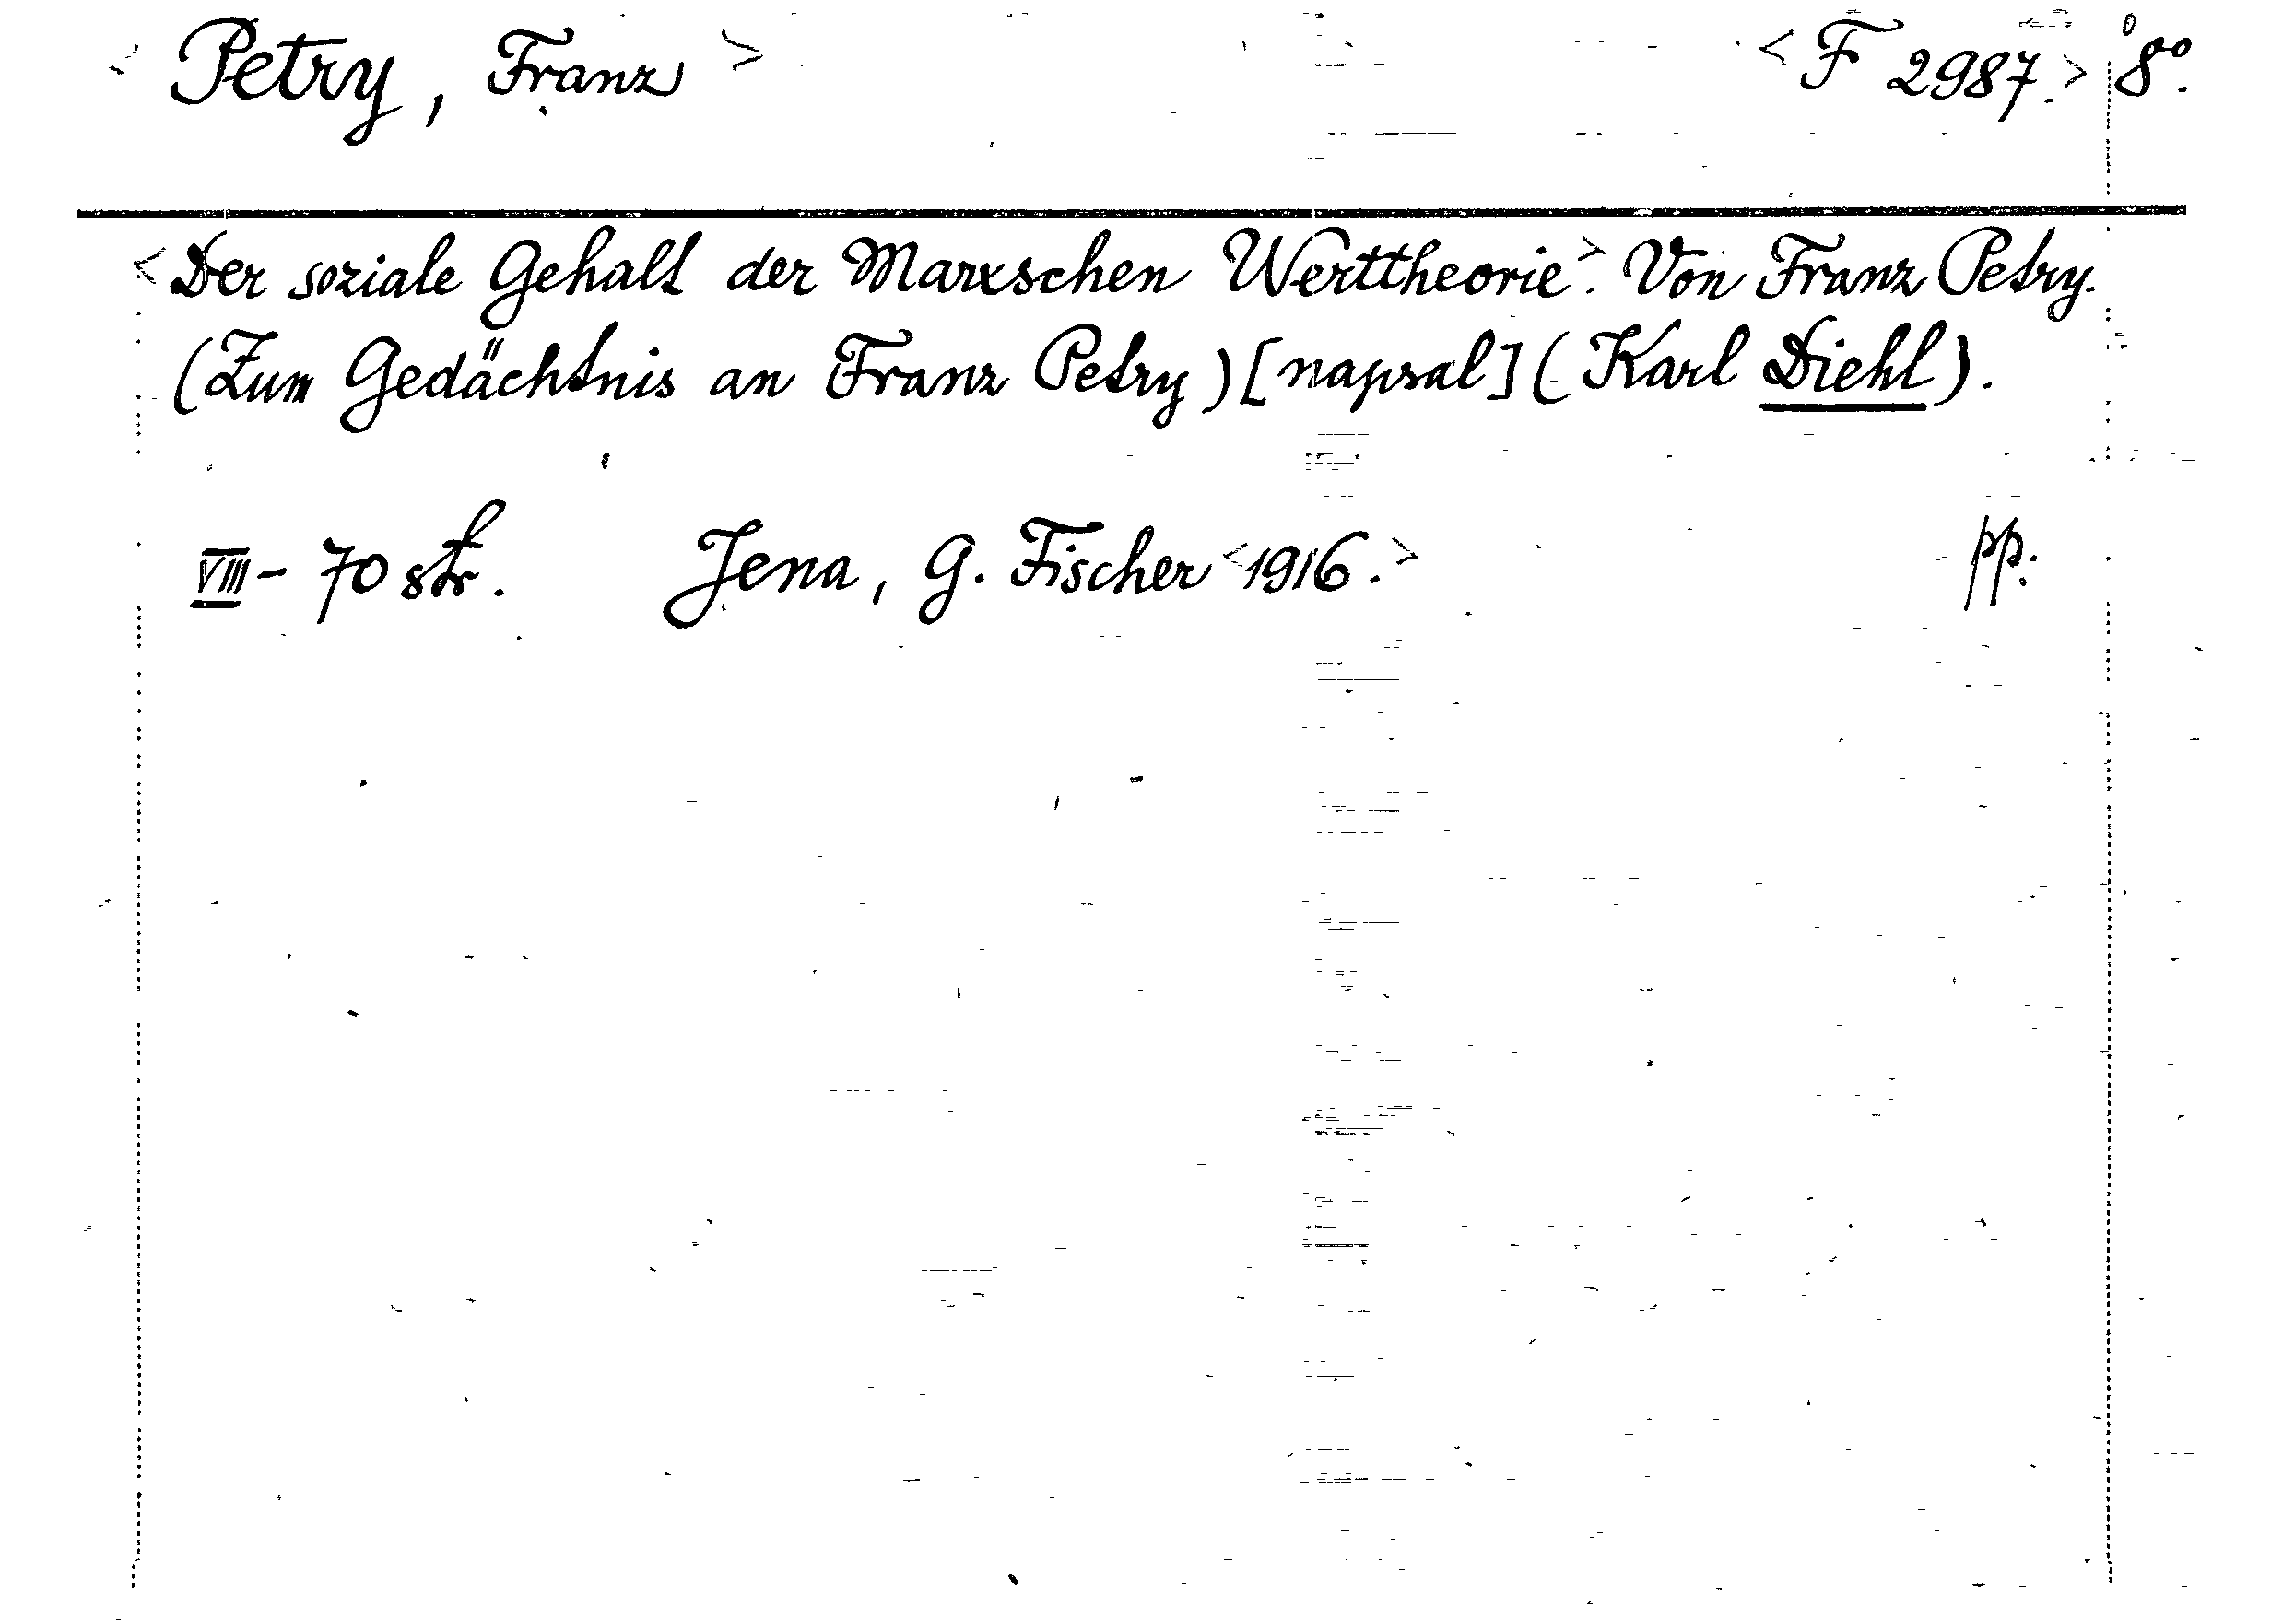 < Petry, Franz > < F 2987. > 8°.
< Der soziale Gehalt der Marxschen Werttheorie >. Von Franz Petry.
(Zum Gedächtnis an Franz Petry) [napsal] (Karl Diehl).
VIII - 70 str. Jena, G. Fischer < 1916. > pp.